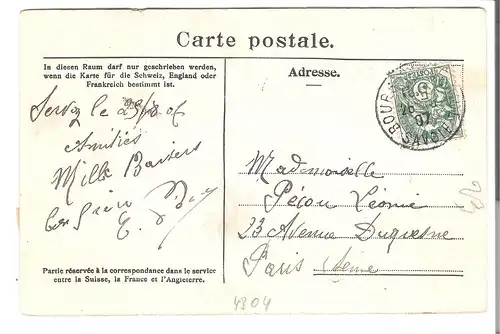 Carte postale.
In diesen Raum darf nur geschrieben werden,
wenn die Karte für die Schweiz, England oder
Frankreich bestimmt ist.
Adresse.
Servoz le
Amitiés
Mille Baisers
E.
Mademoiselle
Pécou Léonie
23 Avenue Duquesne
Paris Seine
Partie réservée à la correspondance dans le service
entre la Suisse, la France et l'Angleterre.
4304